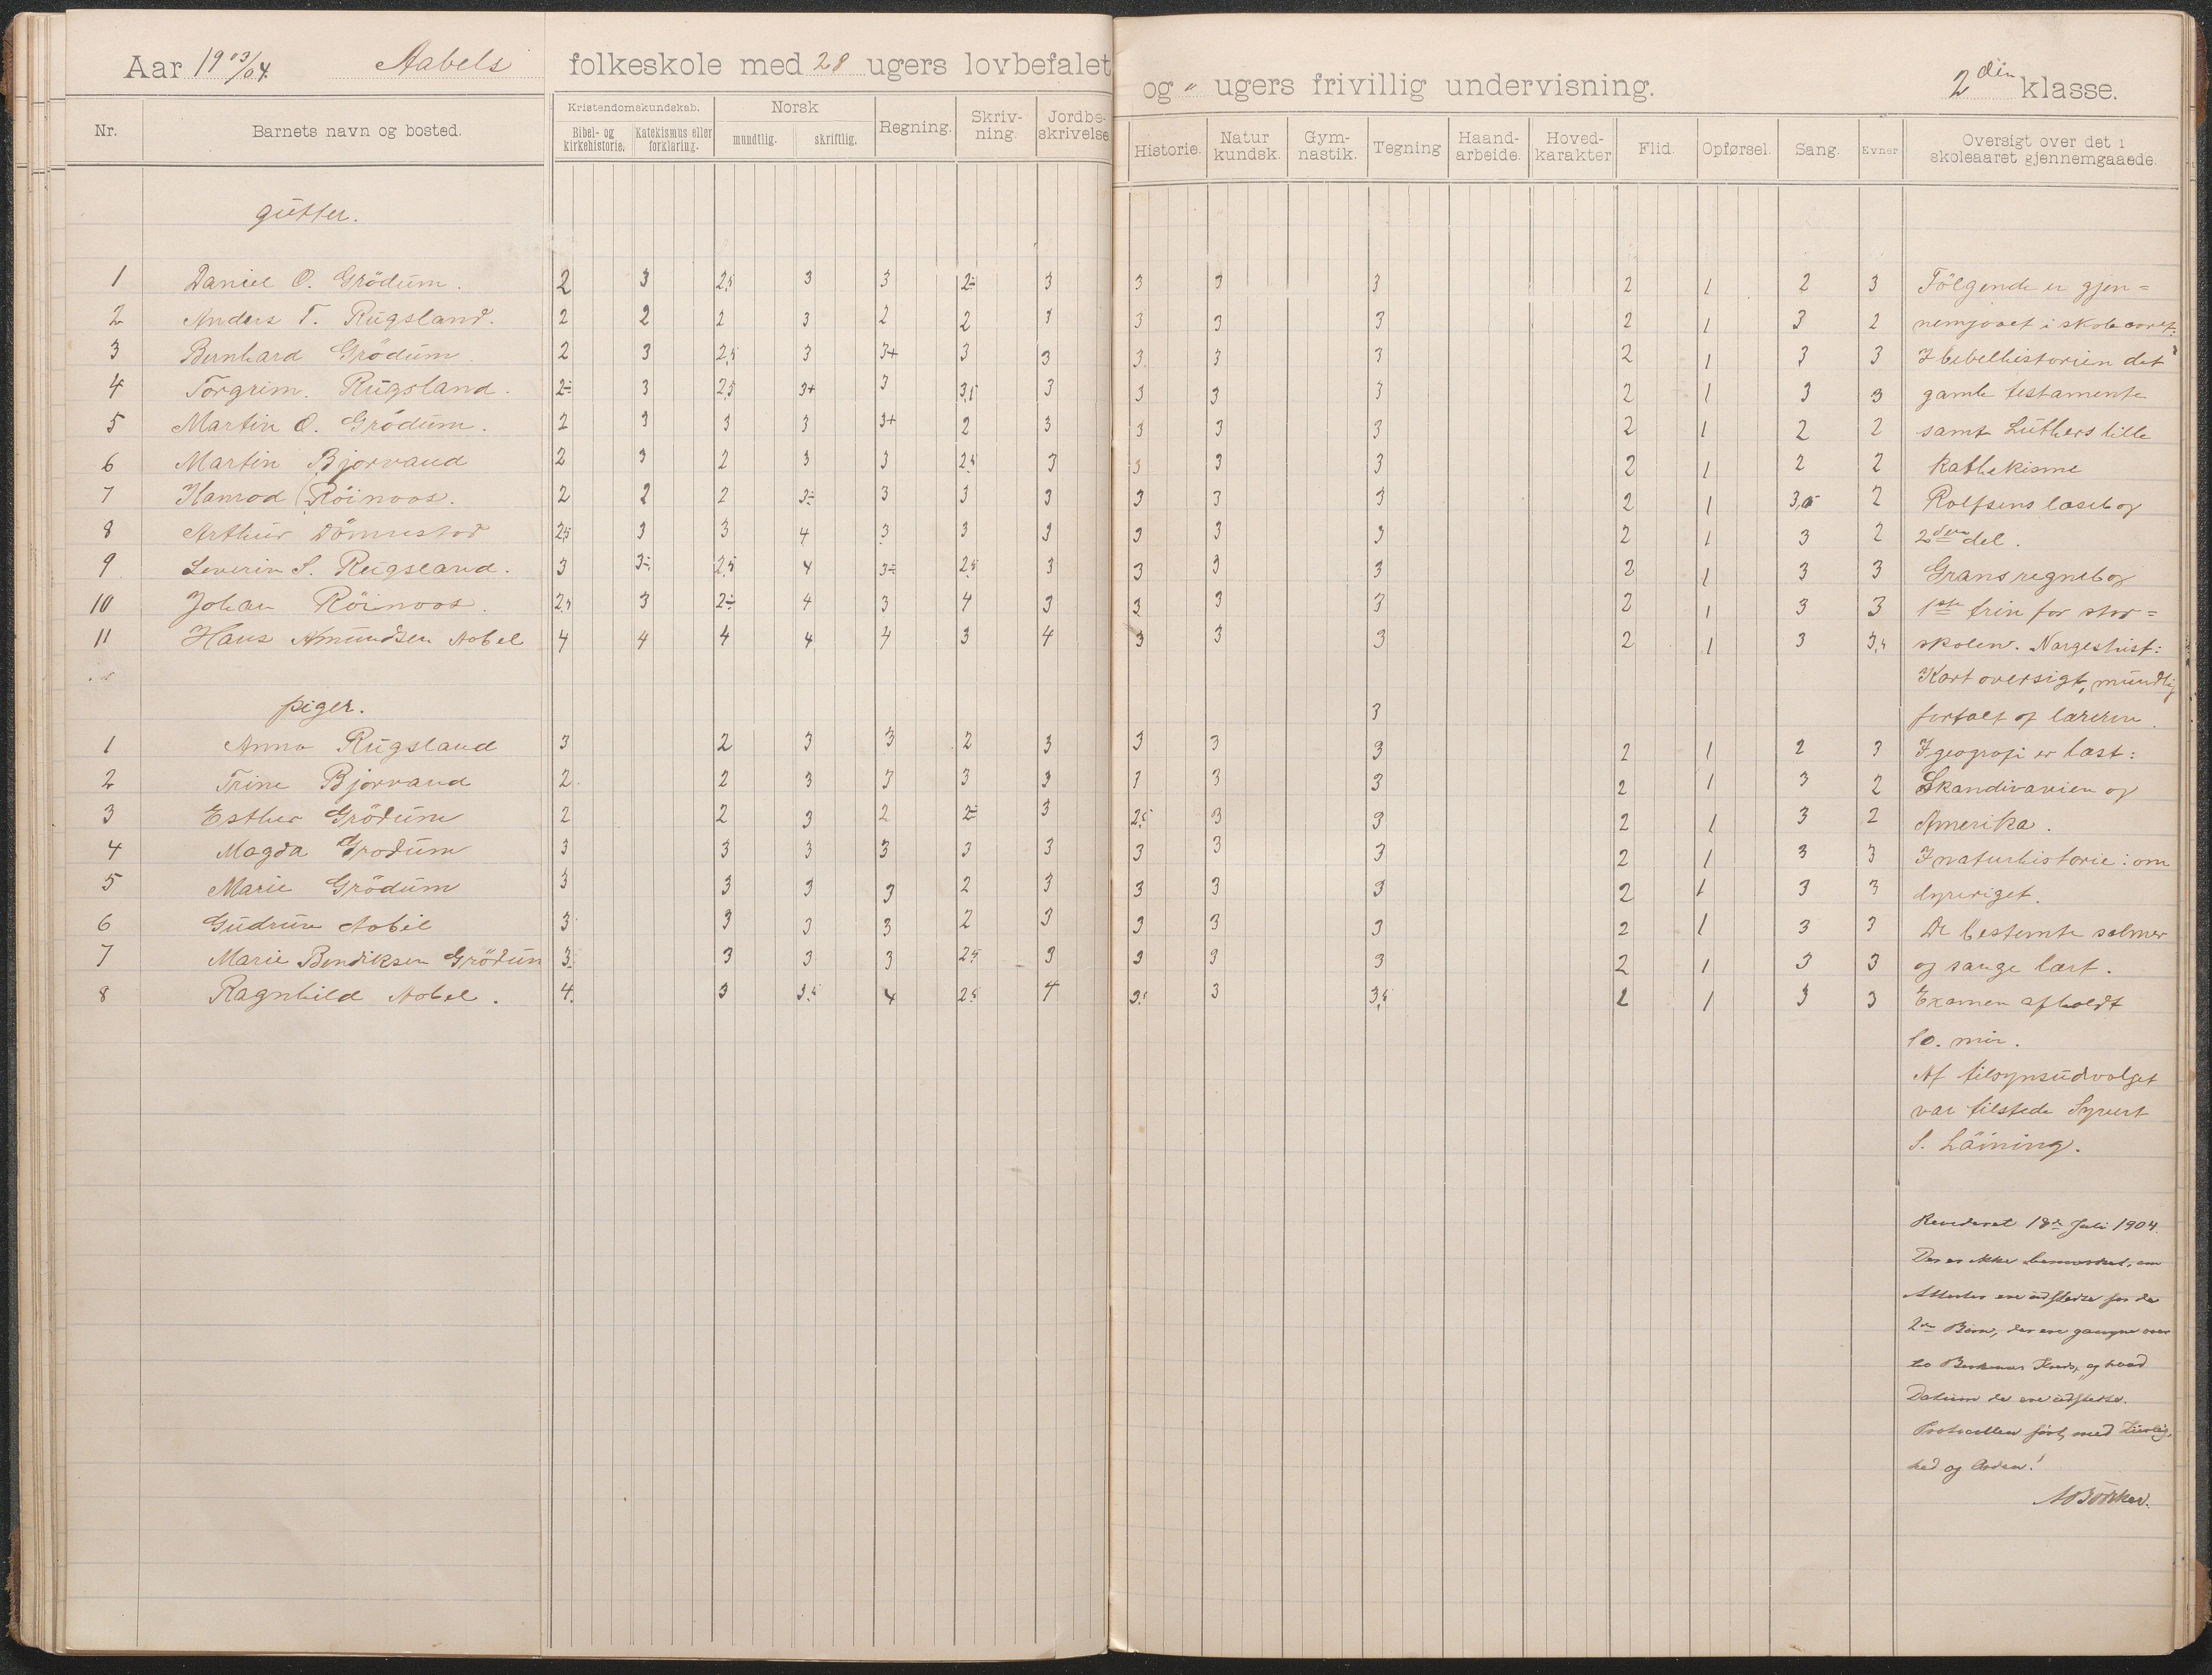 Aar 1903/04. Aabels folkeskole med 28 ugers lovbefalet og " ugers frivillig undervisning. 2den klasse.
Nr. Barnets navn og bosted. Kristendomskundskab. Bibel- og kirkehistorie. Katekismus eller forklaring. Norsk mundtlig. skriftlig. Regning. Skriv-ning. Jordbe-skrivelse Historie. Natur kundsk. Gym-nastik. Tegning Haand-arbeide. Hoved-karakter Flid. Opførsel. Sang. Evner Oversigt over det i skoleaaret gjennemgaaede.
gutter.
1 Daniel O. Grödum. 2 3 2,5 3 3 2÷ 3 3 3 3 2 1 2 3 Fölgende er gjen=
2 Anders T. Rugsland. 2 2 2 3 2 2 3 3 3 3 2 1 3 2 nemgaaet i skoleaaret:
3 Bernhard Grödum 2 3 2,5 3 3+ 3 3 3 3 3 2 1 3 3 I bibelhistorien det
4 Torgrim. Rugsland. 2÷ 3 2,5 3+ 3 3,5 3 3 3 3 2 1 3 3 gamle testamente
5 Martin O. Grödum. 2 3 3 3 3+ 2 3 3 3 3 2 1 2 2 samt Luthers lille
6 Martin Bjorvand 2 3 2 3 3 2,5 3 3 3 3 2 1 2 2 kathekisme
7 Konrad Röinaas. 2 2 2 3÷ 3 3 3 3 3 3 2 1 3,5 2 Rolfsens læsebog
8 Arthur Dönnestad 2,5 3 3 4 3 3 3 3 3 3 2 1 3 2 2den del.
9 Severin S. Rugsland. 3 3÷ 2,5 4 3÷ 2,5 3 3 3 3 2 1 3 3 Grans regnebog
10 Johan Röinaas. 2,5 3 2÷ 4 3 4 3 3 3 3 2 1 3 3 1ste trin for stor=
11 Hans Amundsen Aabel 4 4 4 4 4 3 4 3 3 3 2 1 3 3,5 skolen. Norgeshist:
Kort oversigt, mundlig
piger. 3 fortalt af læreren.
1 Anna Rugsland 3 2 3 3 2 3 3 3 3 2 1 2 3 I geografi er læst:
2 Trine Bjorvand 2 2 3 3 3 3 3 3 3 2 1 3 2 Skandivavien og
3 Esther Grödum 2 2 3 2 2÷ 3 2,5 3 3 2 1 3 2 Amerika.
4 Magda Grodum 3 3 3 3 3 3 3 3 3 2 1 3 3 I naturhistorie: om
5 Marie Grödum 3 3 3 3 2 3 3 3 3 2 1 3 3 dyreriget.
6 Gudrun Aabel 3 3 3 3 2 3 3 3 3 2 1 3 3 De bestemte salmer
7 Marie Bendiksen Grödum 3 3 3 3 2,5 3 3 3 3 2 1 3 3 og sange lært.
8 Ragnhild Aabel. 4 3 3,5 4 2,5 4 3,5 3 3,5 2 1 3 3 Examen afholdt
10. mai.
Af tilsynsudvalget
var tilstede Syvert
S. Läining.
Revideret 18de Juli 1904.
Der er ikke bemærket, om
Attester ere udstedte for de
2de Børn, der ere gangne over
til Kreds, og hvad
Datum de ere udstedte.
Protocollen ført med Zirlig-
hed og Orden!